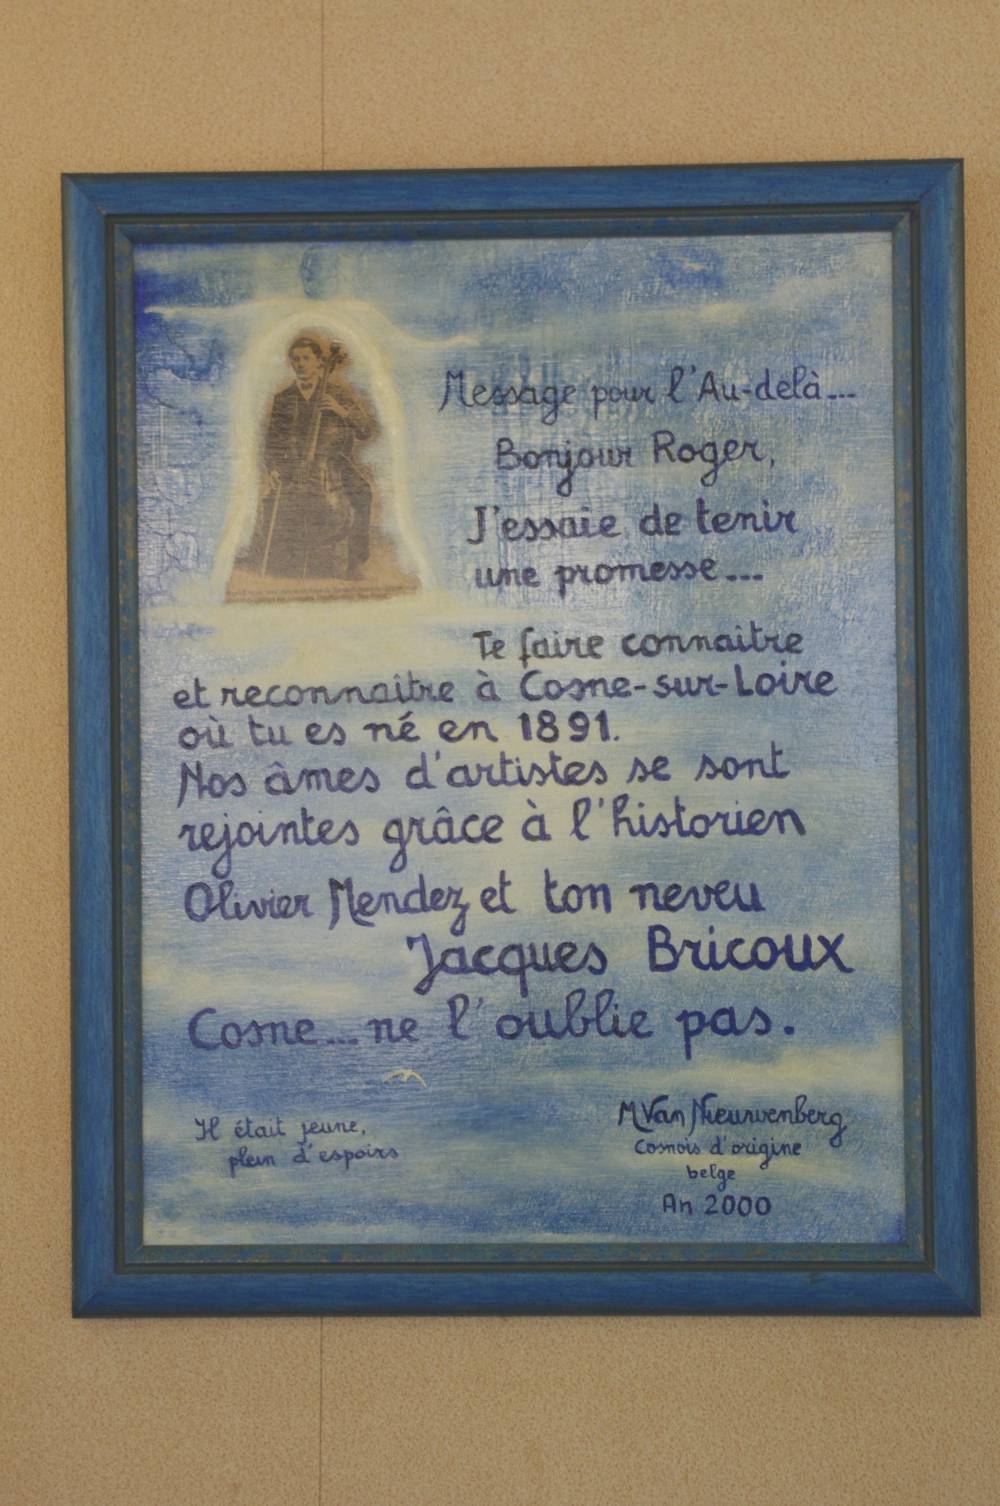 Message pour l'Au-delà...
Bonjour Roger,
J'essaie de tenir
une promesse...
Te faire connaître
et reconnaître à Cosne-sur-Loire
où tu es né en 1891.
Nos âmes d'artistes se sont
rejointes grâce à l'historien
Olivier Mendez et ton neveu
Jacques Bricoux
Cosne... ne l'oublie pas.
Il était jeune,
plein d'espoirs
M Van Nieuwenberg
Cosnois d'origine
belge
An 2000